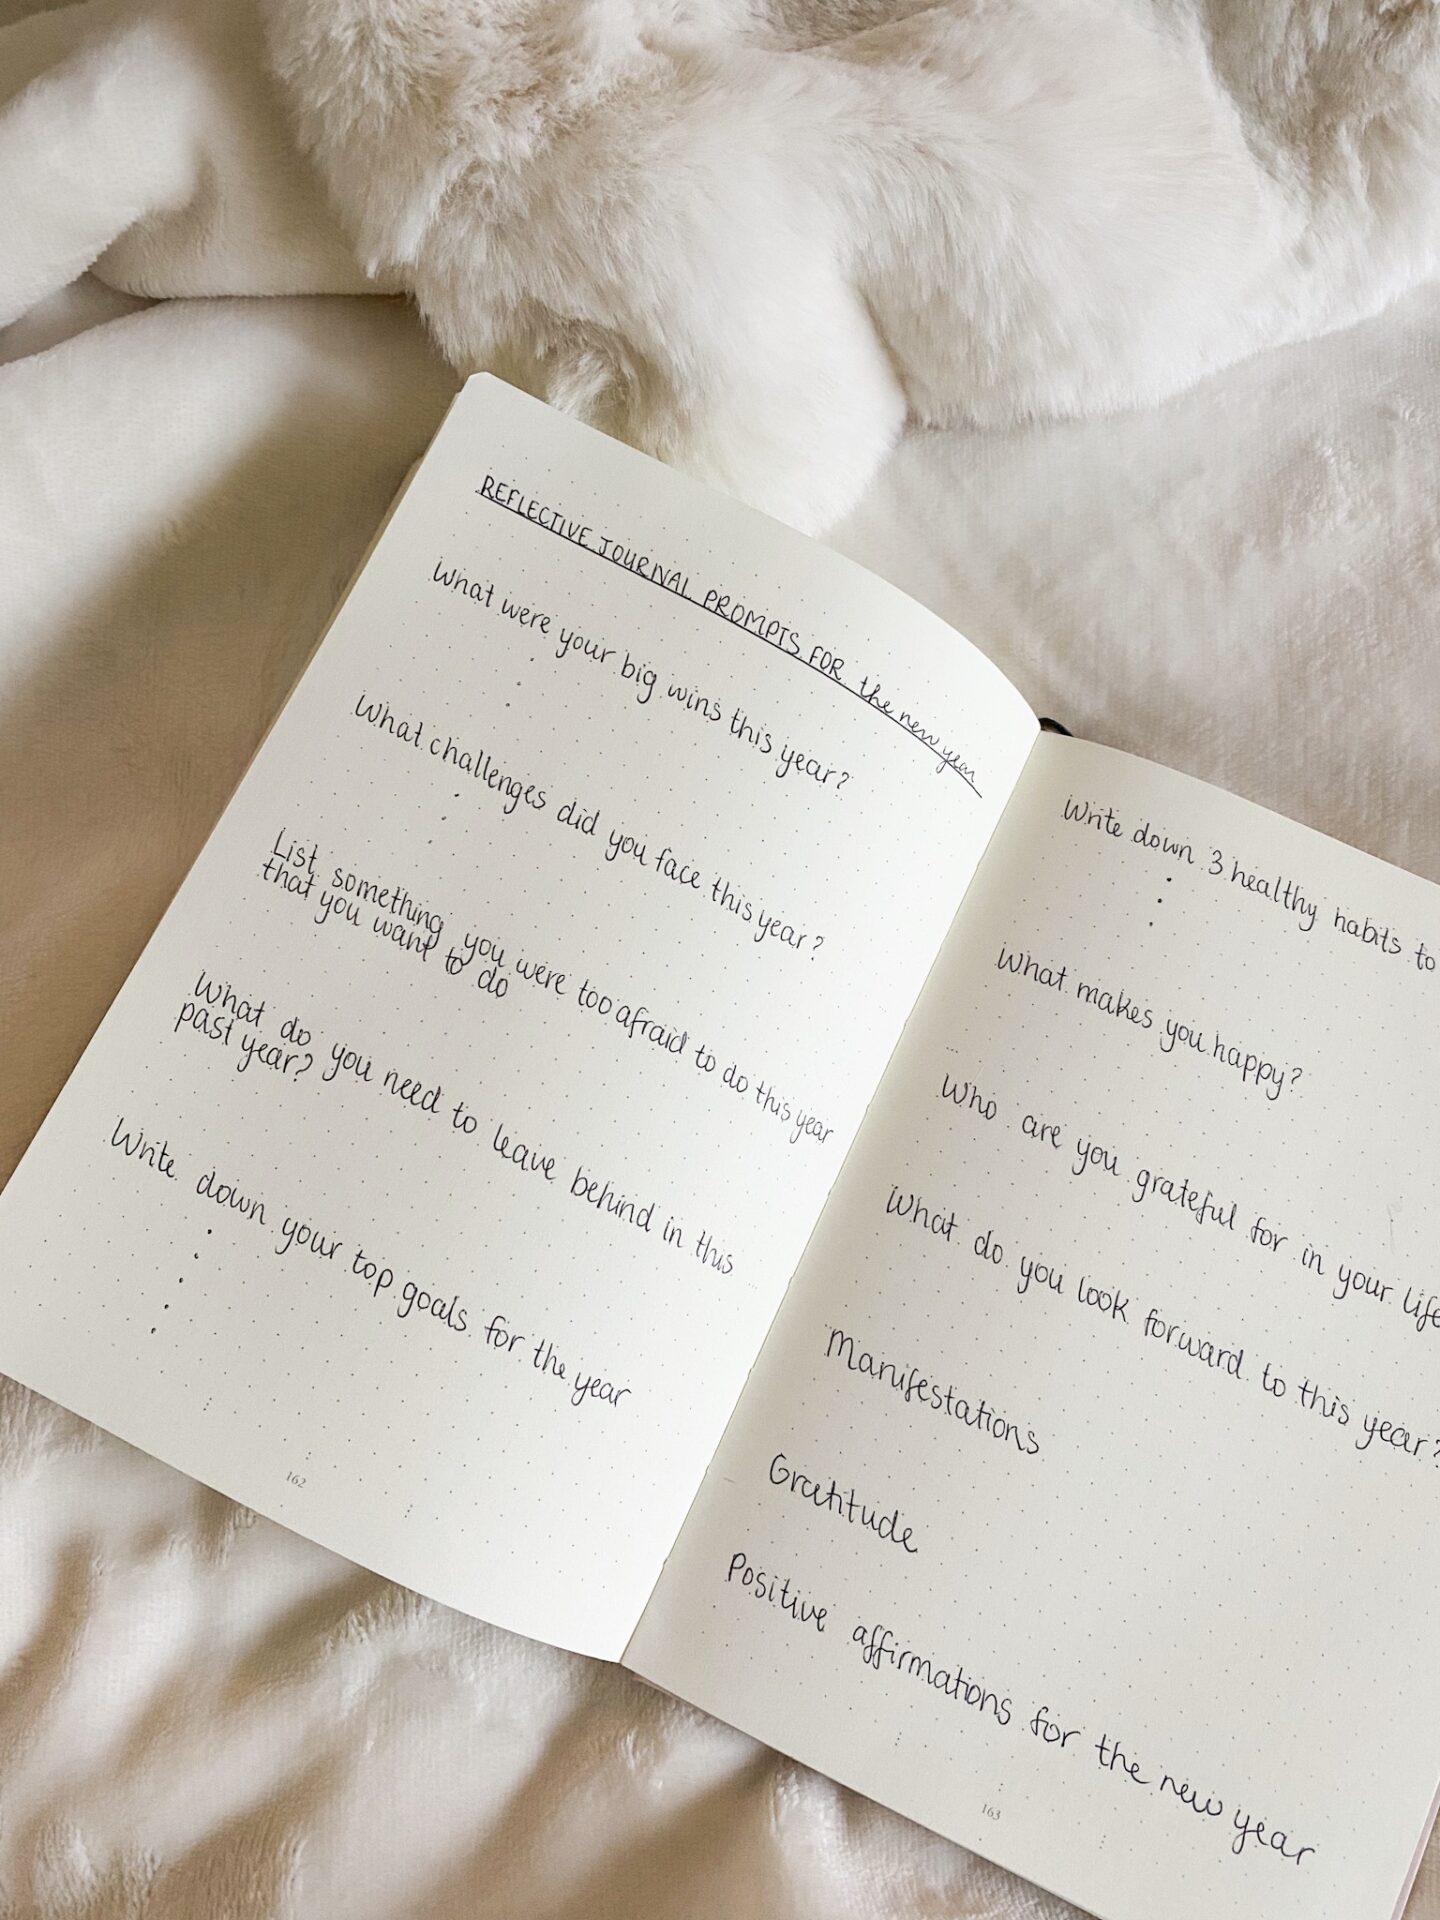 REFLECTIVE JOURNAL PROMPTS FOR the new year
What were your big wins this year?
What challenges did you face this year?
List something you were too afraid to do this year
that you want to do
What do you need to leave behind in this
past year?
Write down your top goals for the year
162
Write down 3 healthy habits to
What makes you happy?
Who are you grateful for in your life
What do you look forward to this year?
Manifestations
Gratitude
Positive affirmations for the new year
163